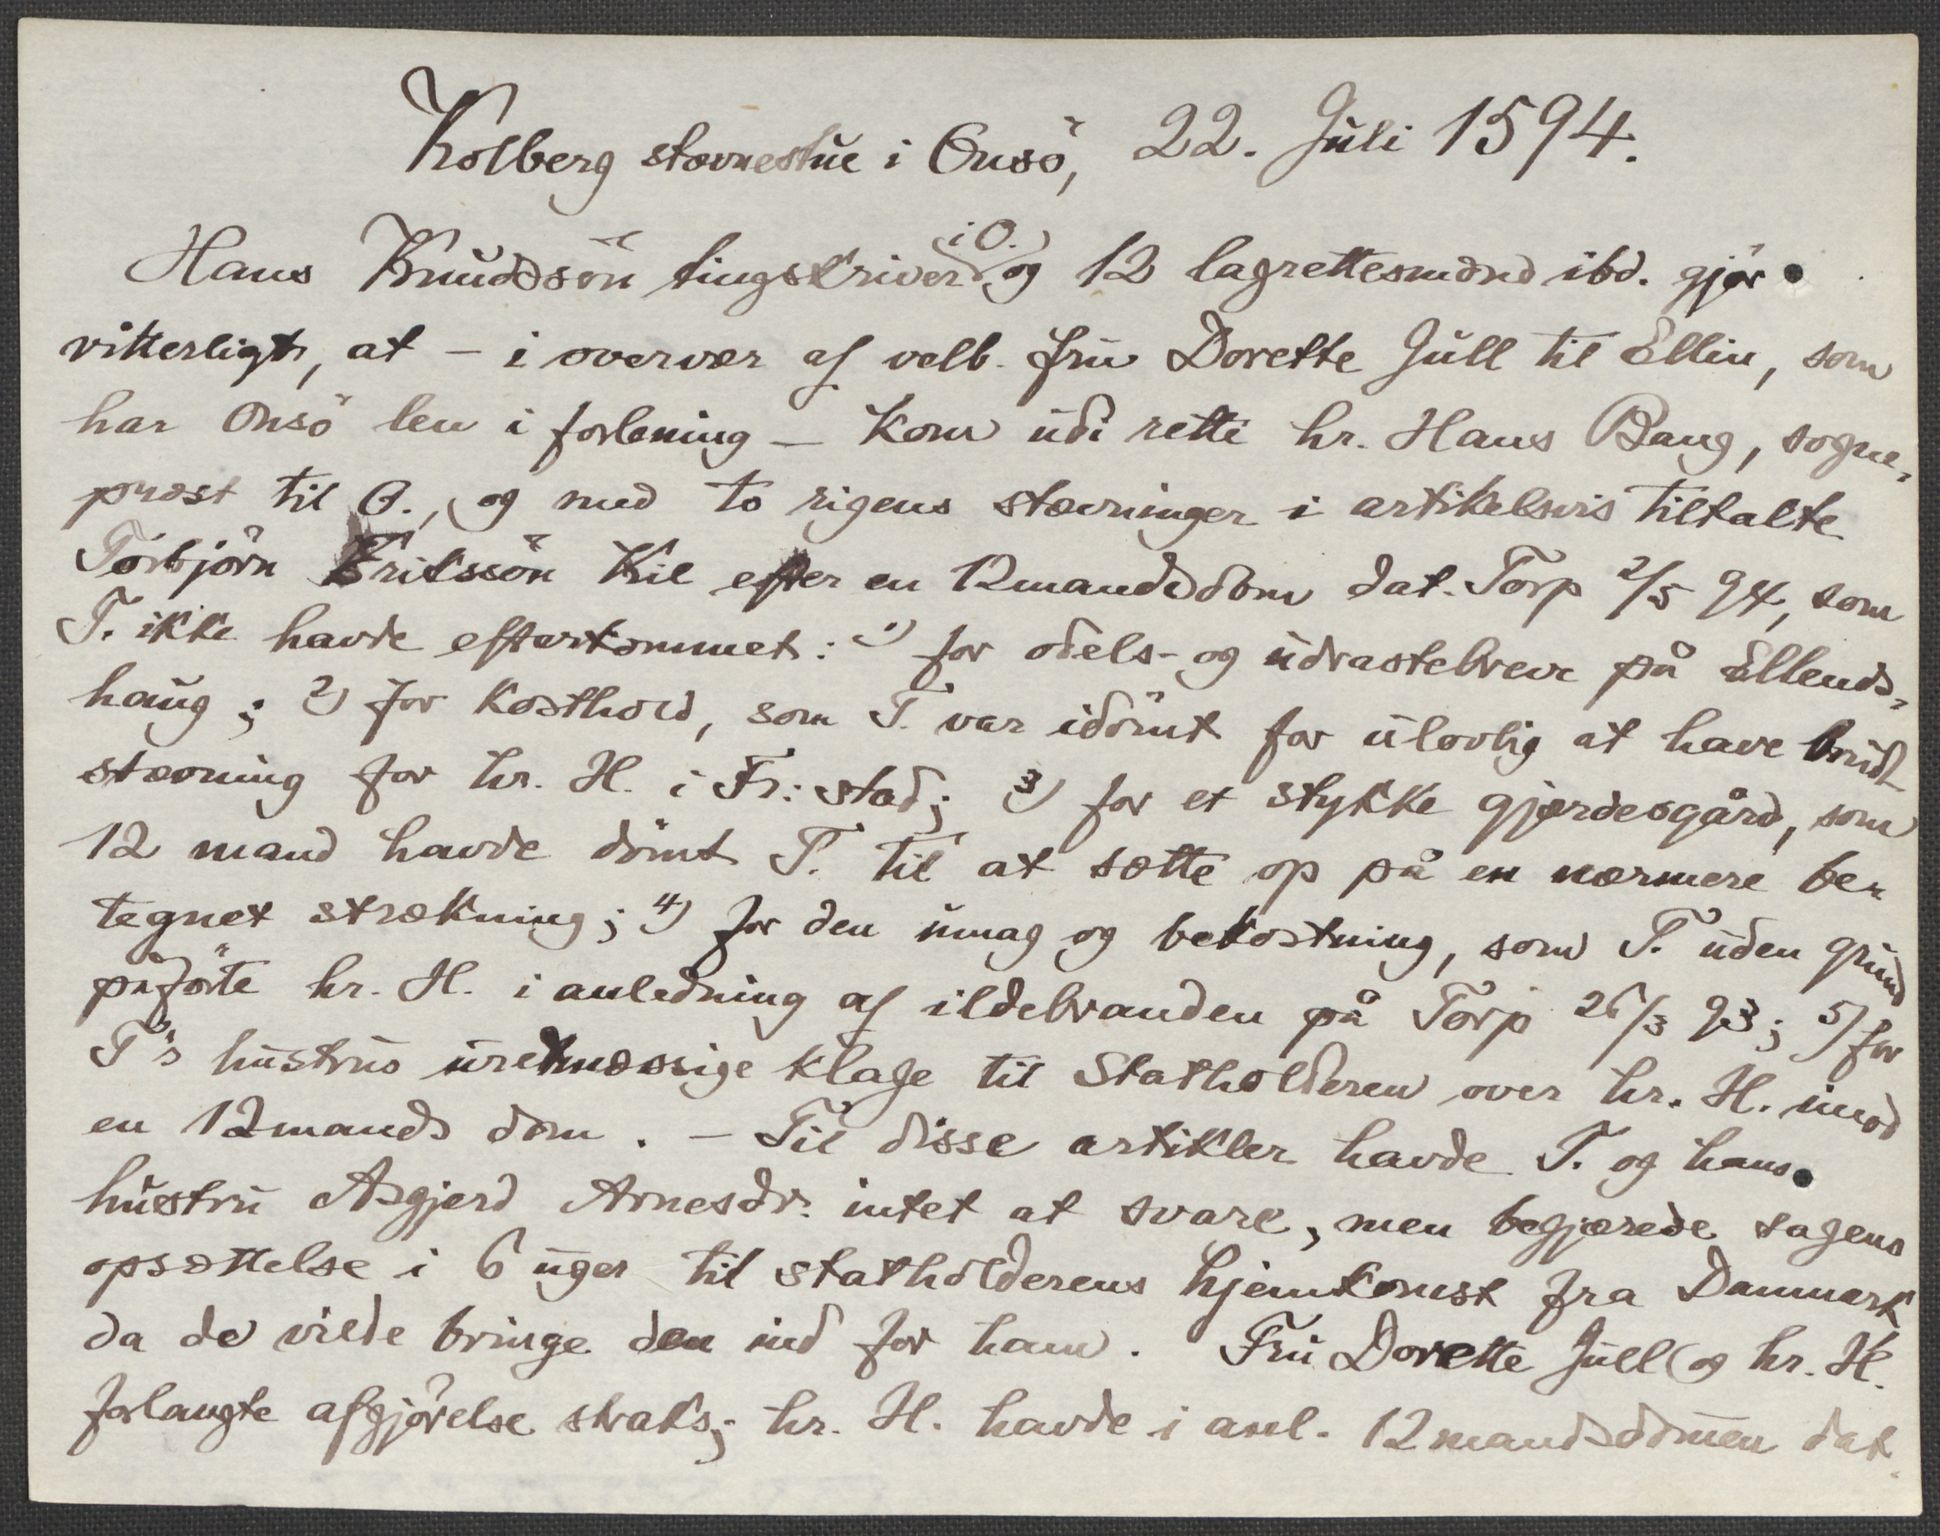 Kolberg stævnestue i Onsö, 22. Juli 1594.
i O.
Hans Knudssön tingskriver og 12 lagrettesmænd ibd. gjör
vitterligt, at – i overvær af velb. fru Dorette Jull til Ellin, som
har Onsö len i forlening – kom udi rette hr. Hans Bang, sogne-
præst til O., og med to rigens stævninger i artikelsvis tiltalte
Torbjörn Erikssön Kil efter en 12mandsdom dat. Torp 2/5 94, som
T. ikke havde efterkommet: 1) for odels- og udrastebreve på Ellends-
haug; 2) for kosthold, som T. var idömt for ulovlig at have brudt
stævning for hr. H. i Fr:stad; 3) for et stykke gjærdesgård, som
12 mand havde dömt T. til at sætte op på en nærmere be-
tegnet strækning; 4) for den umag og bekostning, som T. uden grund
påförte hr. H. i anledning af ildebranden på Torp 26/3 93; 5) for
T's hustrus uretmæssige klage til Statholderen over hr. H. imod
en 12mands dom. – Til disse artikler havde T. og hans
hustru Asgjerd Arnesdr. intet at svare, men begjærede sagens
opsættelse i 6 uger til statholderens hjemkomst fra Danmark
da de vilde bringe den ind for ham. Fru Dorette Jull og hr. H.
forlangte afgjörelse straks; hr. H. havde i anl. 12mandsdommen dat.